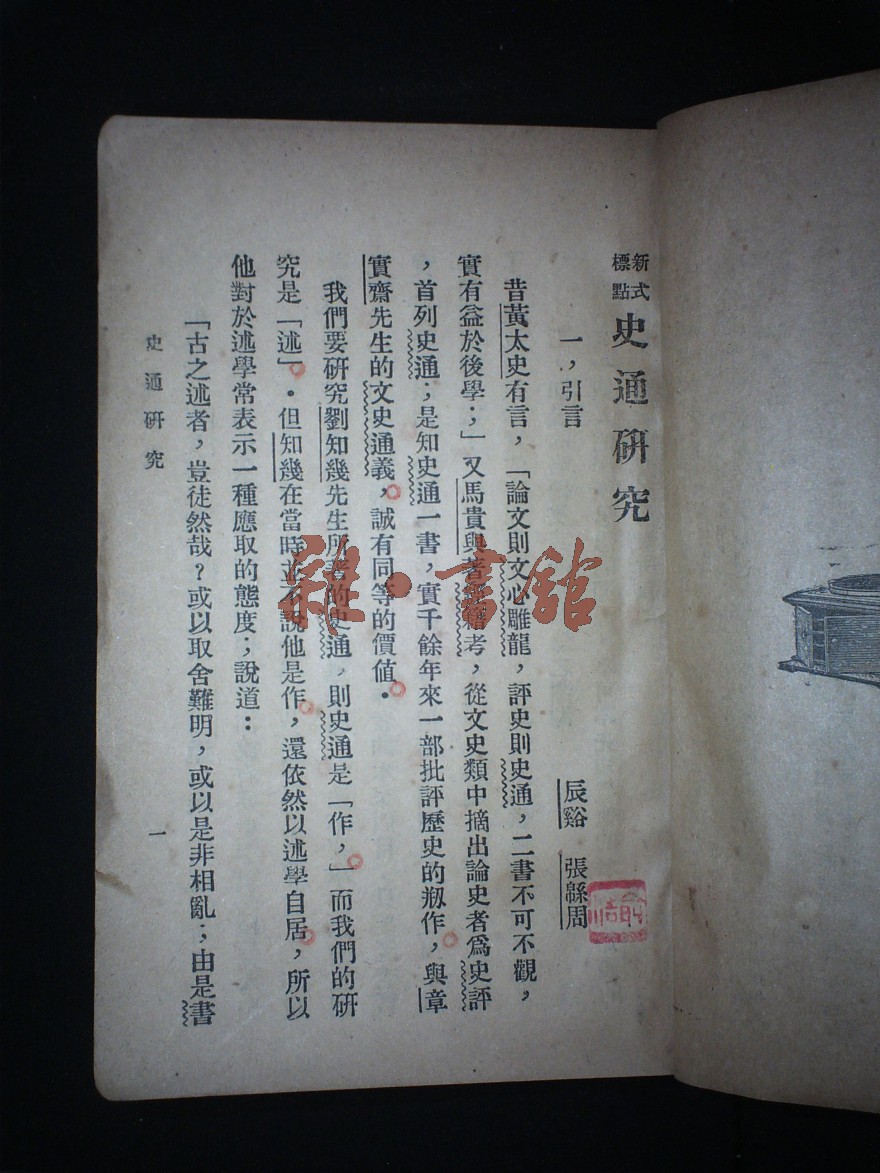 新式標點 史通研究
辰谿 張緜周
一，引言
昔黃太史有言，「論文則文心雕龍，評史則史通，二書不可不觀，
實有益於後學；」又馬貴與著經籍考，從文史類中摘出論史者爲史評
，首列史通；是知史通一書，實千餘年來一部批評歷史的剏作，與章
實齋先生的文史通義，誠有同等的價値．
我們要硏究劉知幾先生所著的史通，則史通是「作，」而我們的硏
究是「述」．但知幾在當時並不說他是作，還依然以述學自居，所以
他對於述學常表示一種應取的態度；說道：
「古之述者，豈徒然哉？或以取舍難明，或以是非相亂；由是書
史通硏究
一
雜·書館